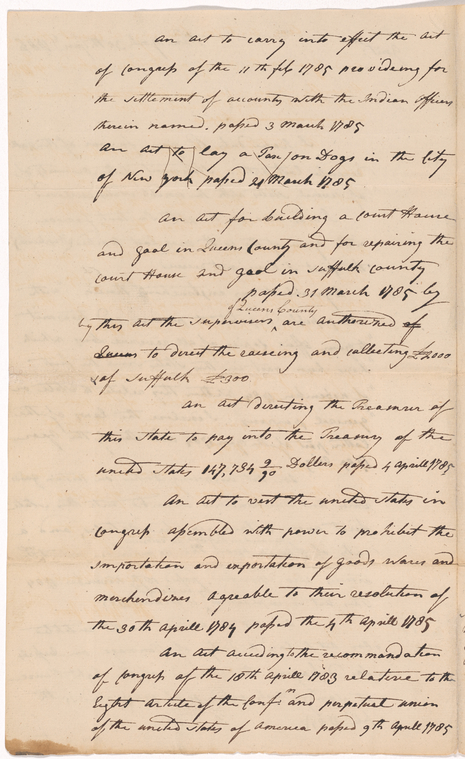 An Act to carry into effect the Act
of Congress of the 11th feby 1785 provideing for
the settlement of accounts with the Indian officers
therein named. passed 3 March 1785
An Act to lay a Tax on Dogs in the City
of New york passed 21 March 1785
An Act for building a Court House
and gaol in Queens County and for repairing the
Court House and gaol in Suffolk County
passed. 31 March 1785 by
of Queens County
by this Act the supervisors are authorized of
Queens to direct the raiseing and collecting £2000
& of Suffolk £300
An Act directing the Treasurer of
this State to pay into the Treasury of the
united States 147,734 9/90 Dollers passed 4 Aprill 1785
An Act to vest the united States in
Congress assembled with power to prohibit the
importation and exportation of goods wares and
merchendizes agreable to their resolution of
the 30th Aprill 1784 passed the 4th Aprill 1785
An Act acceding to the recommandation
of Congress of the 18th Aprill 1783 relative to the
Eight Article of the Confn and perpetual union
of the united States of America passed 9th Aprill 1785